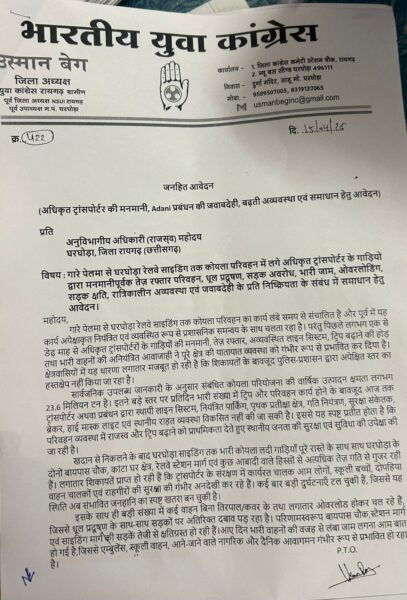 भारतीय युवा कांग्रेस
उस्मान बेग
जिला अध्यक्ष
युवा कांग्रेस रायगढ़ ग्रामीण
पूर्व जिला अध्यक्ष NSUI रायगढ़
पूर्व उपाध्यक्ष न.पं. घरघोड़ा
कार्यालय - 1. जिला कांग्रेस कमेटी स्टेशन चौक, रायगढ़
2. न्यू बस स्टैण्ड घरघोड़ा 496111
निवास - दुर्गा मंदिर, साहू मो. घरघोड़ा
मोबा.- 9589507005, 8319137065
usmanbegino@gmail.com
क्र. 422
दि.
जनहित आवेदन
(अधिकृत ट्रांसपोर्टर की मनमानी, Adani प्रबंधन की जवाबदेही, बढ़ती अव्यवस्था एवं समाधान हेतु आवेदन)
प्रति
अनुविभागीय अधिकारी (राजस्व) महोदय
घरघोड़ा, जिला रायगढ़ (छत्तीसगढ़)
विषय : गारे पेलमा से घरघोड़ा रेलवे साइडिंग तक कोयला परिवहन में लगे अधिकृत ट्रांसपोर्टर के गाड़ियो
द्वारा मनमानीपूर्वक तेज़ रफ्तार परिवहन, धूल प्रदूषण, सड़क अवरोध, भारी जाम, ओवरलोडिंग,
सड़क क्षति, रात्रिकालीन अव्यवस्था एवं जवाबदेही के प्रति निष्क्रियता के संबंध में समाधान हेतु
आवेदन।
महोदय,
गारे पेलमा से घरघोड़ा रेलवे साइडिंग तक कोयला परिवहन का कार्य लंबे समय से संचालित है और पूर्व में यह
कार्य अपेक्षाकृत नियंत्रित एवं व्यवस्थित रूप से प्रशासनिक समन्वय के साथ चलता रहा है। परंतु पिछले लगभग एक से
डेढ़ माह से अधिकृत ट्रांसपोर्टर के गाड़ियों की मनमानी, तेज़ रफ्तार, अव्यवस्थित लाइन सिस्टम, ट्रिप बढ़ाने की होड़
तथा भारी वाहनों की अनियंत्रित आवाजाही ने पूरे क्षेत्र की यातायात व्यवस्था को गंभीर रूप से प्रभावित कर दिया है।
क्षेत्रवासियों में यह धारणा लगातार मजबूत हो रही है कि शिकायतों के बावजूद पुलिस-प्रशासन द्वारा अपेक्षित स्तर का
हस्तक्षेप नहीं किया जा रहा है।
सार्वजनिक उपलब्ध जानकारी के अनुसार संबंधित कोयला परियोजना की वार्षिक उत्पादन क्षमता लगभग
23.6 मिलियन टन है। इतने बड़े स्तर पर प्रतिदिन भारी संख्या में ट्रिप और परिवहन कार्य होने के बावजूद आज तक
ट्रांसपोर्टर अथवा प्रबंधन द्वारा स्थायी लाइन सिस्टम, नियंत्रित पार्किंग, पृथक प्रतीक्षा क्षेत्र, गति नियंत्रण, सुरक्षा संकेतक,
ब्रेकर, हाई मास्क लाइट एवं स्थानीय राहत व्यवस्था विकसित नहीं की जा सकी है। इससे यह स्पष्ट प्रतीत होता है कि
परिवहन व्यवस्था में राजस्व और ट्रिप बढ़ाने को प्राथमिकता देते हुए स्थानीय जनता की सुरक्षा एवं सुविधा की उपेक्षा की
जा रही है।
खदान से निकलने के बाद घरघोड़ा साइडिंग तक भारी कोयला लदी गाड़ियाँ पूरे रास्ते के साथ साथ घरघोड़ा के
दोनों बायपास चौक, कांटा घर क्षेत्र, रेलवे स्टेशन मार्ग एवं कुछ आबादी वाले हिस्सों से अत्यधिक तेज़ गति से गुजर रही
हैं। लगातार शिकायतें प्राप्त हो रही हैं कि ट्रांसपोर्टर के संरक्षण में कार्यरत चालक आम लोगों, स्कूली बच्चों, दोपहिया
वाहन चालकों एवं राहगीरों की सुरक्षा की गंभीर अनदेखी कर रहे हैं। कई बार बड़ी दुर्घटनाएँ टल चुकी हैं, जिससे यह
स्थिति अब संभावित जनहानि का स्पष्ट खतरा बन चुकी है।
इसके साथ ही बड़ी संख्या में कई वाहन बिना तिरपाल/कवर के तथा लगातार ओवरलोड होकर चल रहे हैं,
जिससे धूल प्रदूषण के साथ-साथ सड़कों पर अतिरिक्त दबाव पड़ रहा है। परिणामस्वरूप बायपास चौक,स्टेशन मार्ग
एवं साइडिंग मार्ग की सड़कें तेजी से क्षतिग्रस्त हो रही हैं।आए दिन भारी वाहनों की वजह से लंबा जाम लगना आम बात
हो गई है,जिससे एम्बुलेंस, स्कूली वाहन, आने-जाने वाले नागरिक और दैनिक आवागमन गंभीर रूप से प्रभावित हो रहा
है।
P.T.O.